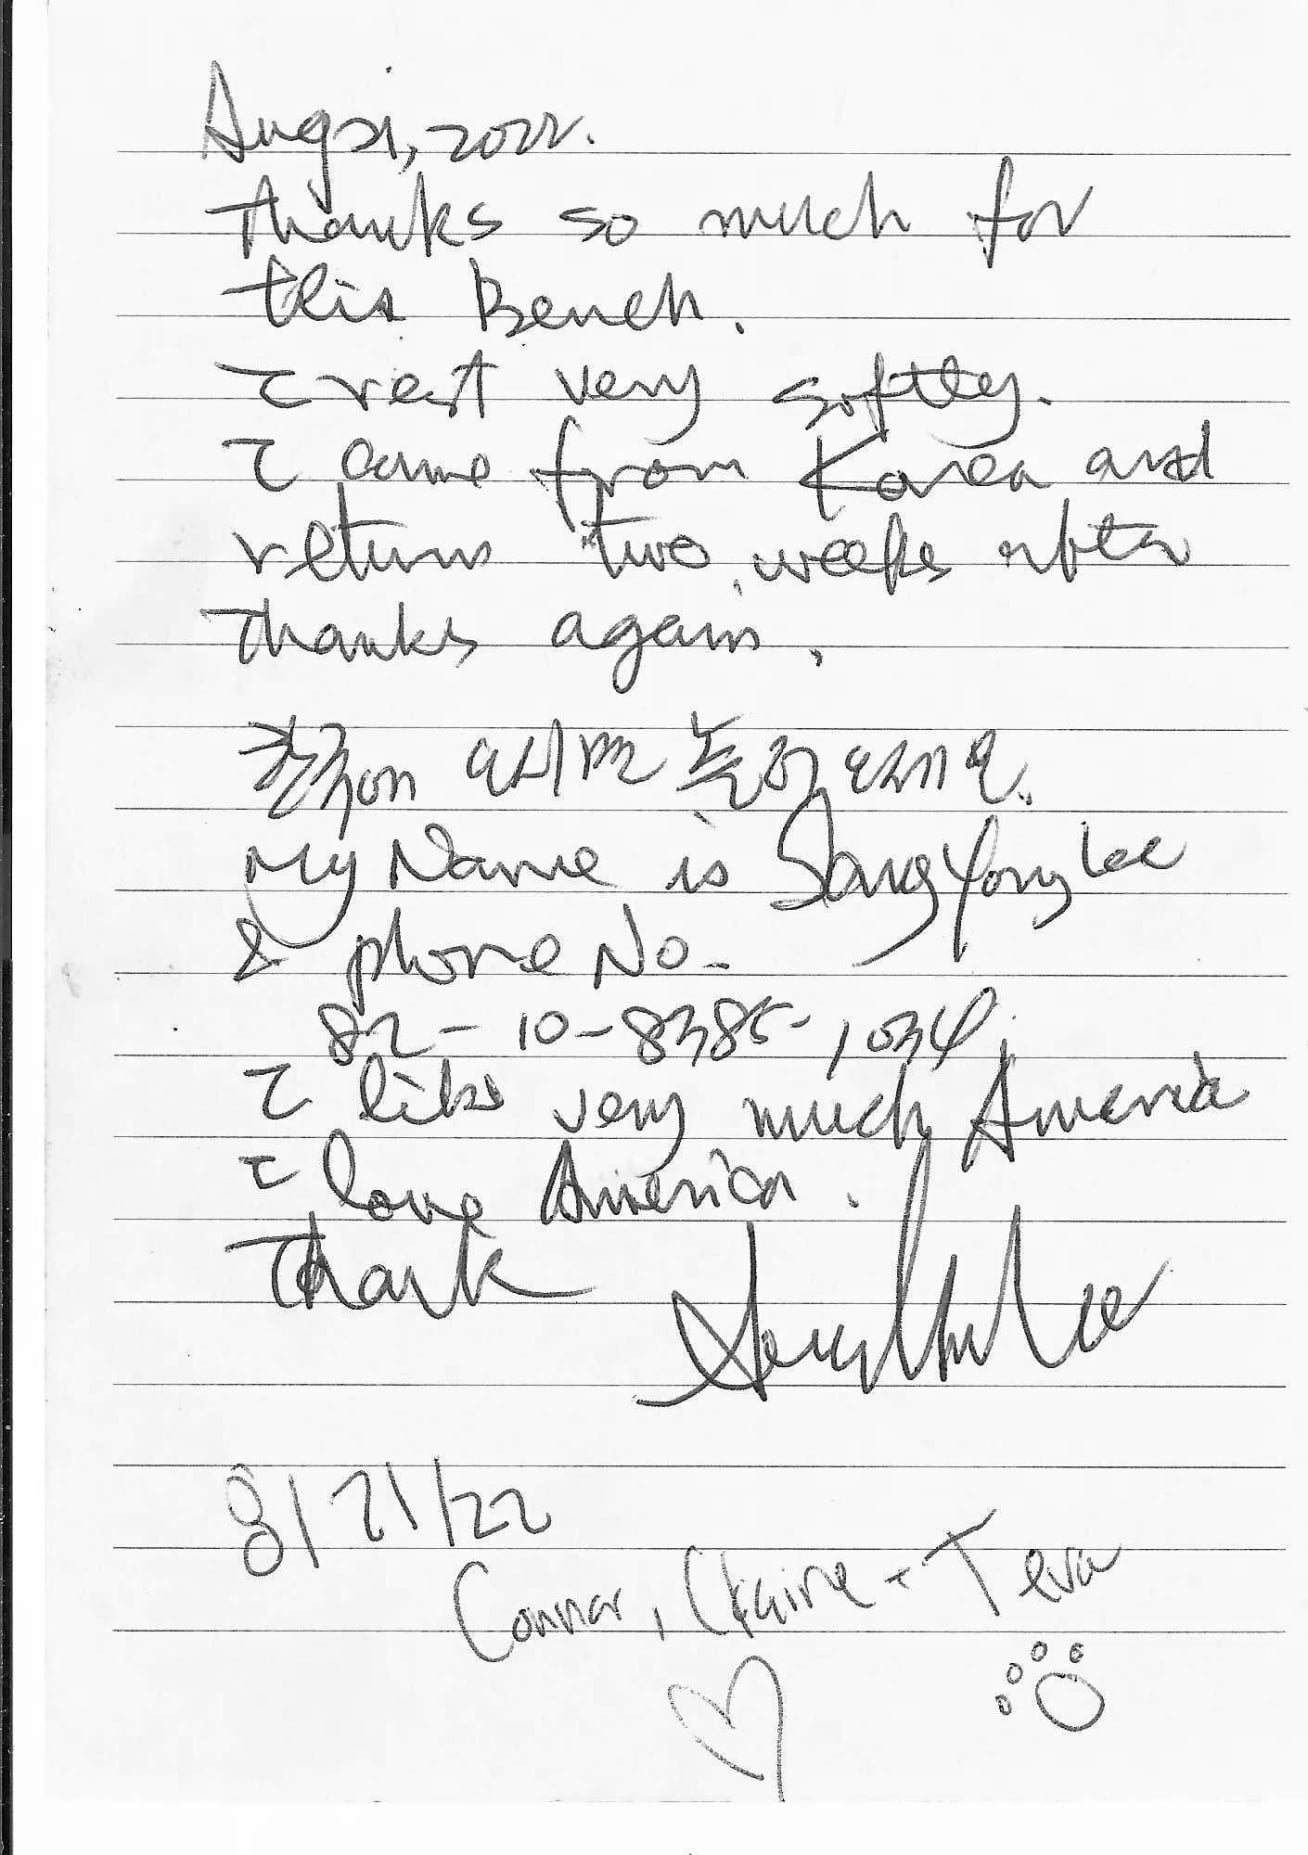 Aug 21, 2022.
Thanks so much for
this Bench.
I rest very softly.
I came from Korea and
return two weeks after
Thanks again.
한국에 오시면 놀러 오세요.
My Name is Sang Yong Lee
& phone No-
82-10-8385-1034.
I like very much America
I love America.
Thank
8/21/22
Connor, Claire + Teva